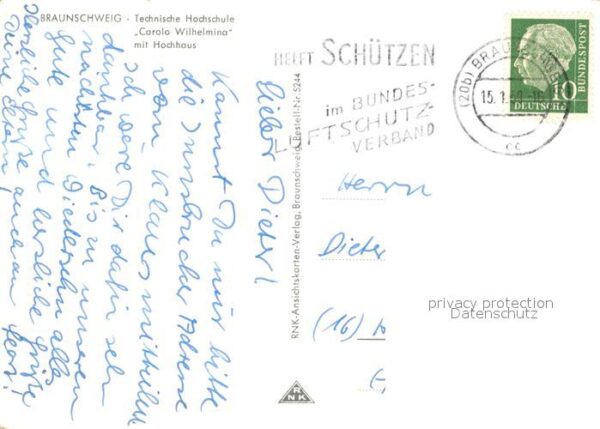 BRAUNSCHWEIG - Technische Hochschule
„Carola Wilhelmina"
mit Hochhaus
HELFT SCHÜTZEN
im BUNDES-
LUFTSCHUTZ-
VERBAND
(20b) BRAUNSCHWEIG
15.1.
cc
DEUTSCHE
BUNDESPOST
10
Lieber Dieter!
Kannst Du mir bitte
die Innsbrucker Adresse
von Klaus mitteilen
Ich wäre Dir dafür sehr
dankbar. Bis zu unserem
nächsten Wiedersehn alles
Gute und herzliche Grüße
Herzliche Grüße auch an
Deine Eltern
RNK-Ansichtskarten-Verlag, Braunschweig, Bestell-Nr. 5244
RNK
Herrn
Dieter
(16)
privacy protection
Datenschutz